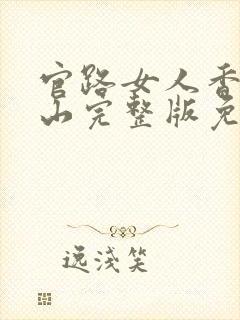 官路女人香
山完整版免
逸淺笑